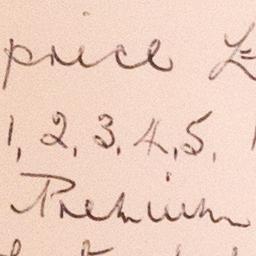 price £
1, 2, 3, 4, 5,
Premium